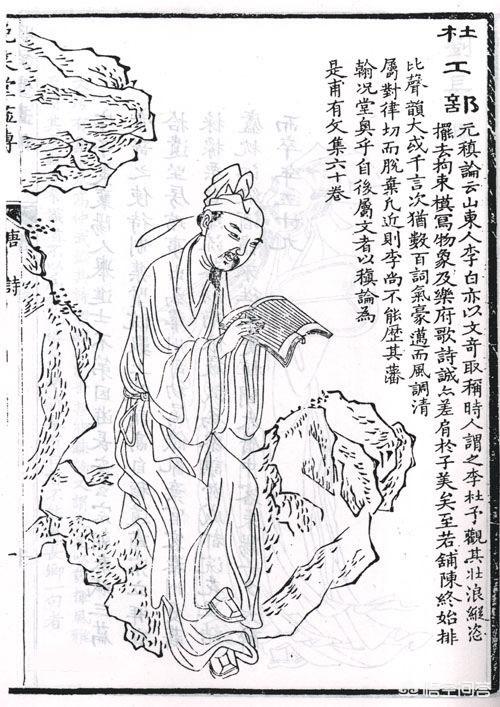 杜工部
元稹論云山東人李白亦以文竒取稱時人謂之李杜予觀其壯浪縱恣
擺去拘束模寫物象及樂府歌詩誠亦差肩於子美矣至若舖陳終始排
比聲韻大或千言次猶數百詞氣豪邁而風調清
屬對律切而脫棄凡近則李尚不能歷其藩
翰况堂奥乎自後屬文者以稹論為
是甫有文集六十卷
笑堂畫傳
唐詩
一
悟空问答